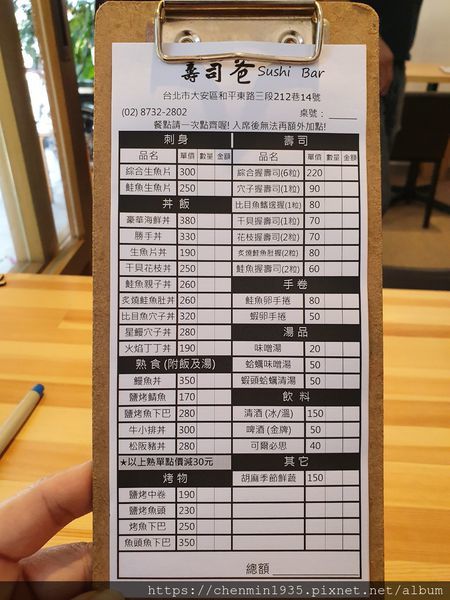 壽司爸 Sushi Bar
台北市大安區和平東路三段212巷14號
(02) 8732-2802 桌號：
餐點請一次點齊喔! 入席後無法再額外加點!
刺身
品名 單價 數量 金額
綜合生魚片 300
鮭魚生魚片 250
丼飯
豪華海鮮丼 380
勝手丼 330
生魚片丼 190
干貝花枝丼 250
鮭魚親子丼 260
炙燒鮭魚肚丼 260
比目魚穴子丼 320
星鰻穴子丼 280
火焰丁丁丼 190
熟食 (附飯及湯)
鰻魚丼 350
鹽烤鯖魚 170
鹽烤魚下巴 280
牛小排丼 300
松阪豬丼 280
★以上熟單點價減30元
烤物
鹽烤中卷 190
鹽烤魚頭 230
烤魚下巴 250
魚頭魚下巴 350
壽司
品名 單價 數量 金額
綜合握壽司(6粒) 220
穴子握壽司(1粒) 90
比目魚鰭邊握(1粒) 80
干貝握壽司(1粒) 70
花枝握壽司(2粒) 70
炙燒鮭魚肚握(2粒) 80
鮭魚握壽司(2粒) 60
手卷
鮭魚卵手捲 80
蝦卵手捲 50
湯品
味噌湯 20
蛤蠣味噌湯 50
蝦頭蛤蠣清湯 50
飲料
清酒 (冰/溫) 150
啤酒 (金牌) 50
可爾必思 40
其它
胡麻季節鮮蔬 150
總額
https://chenmin1935.pixnet.net/album